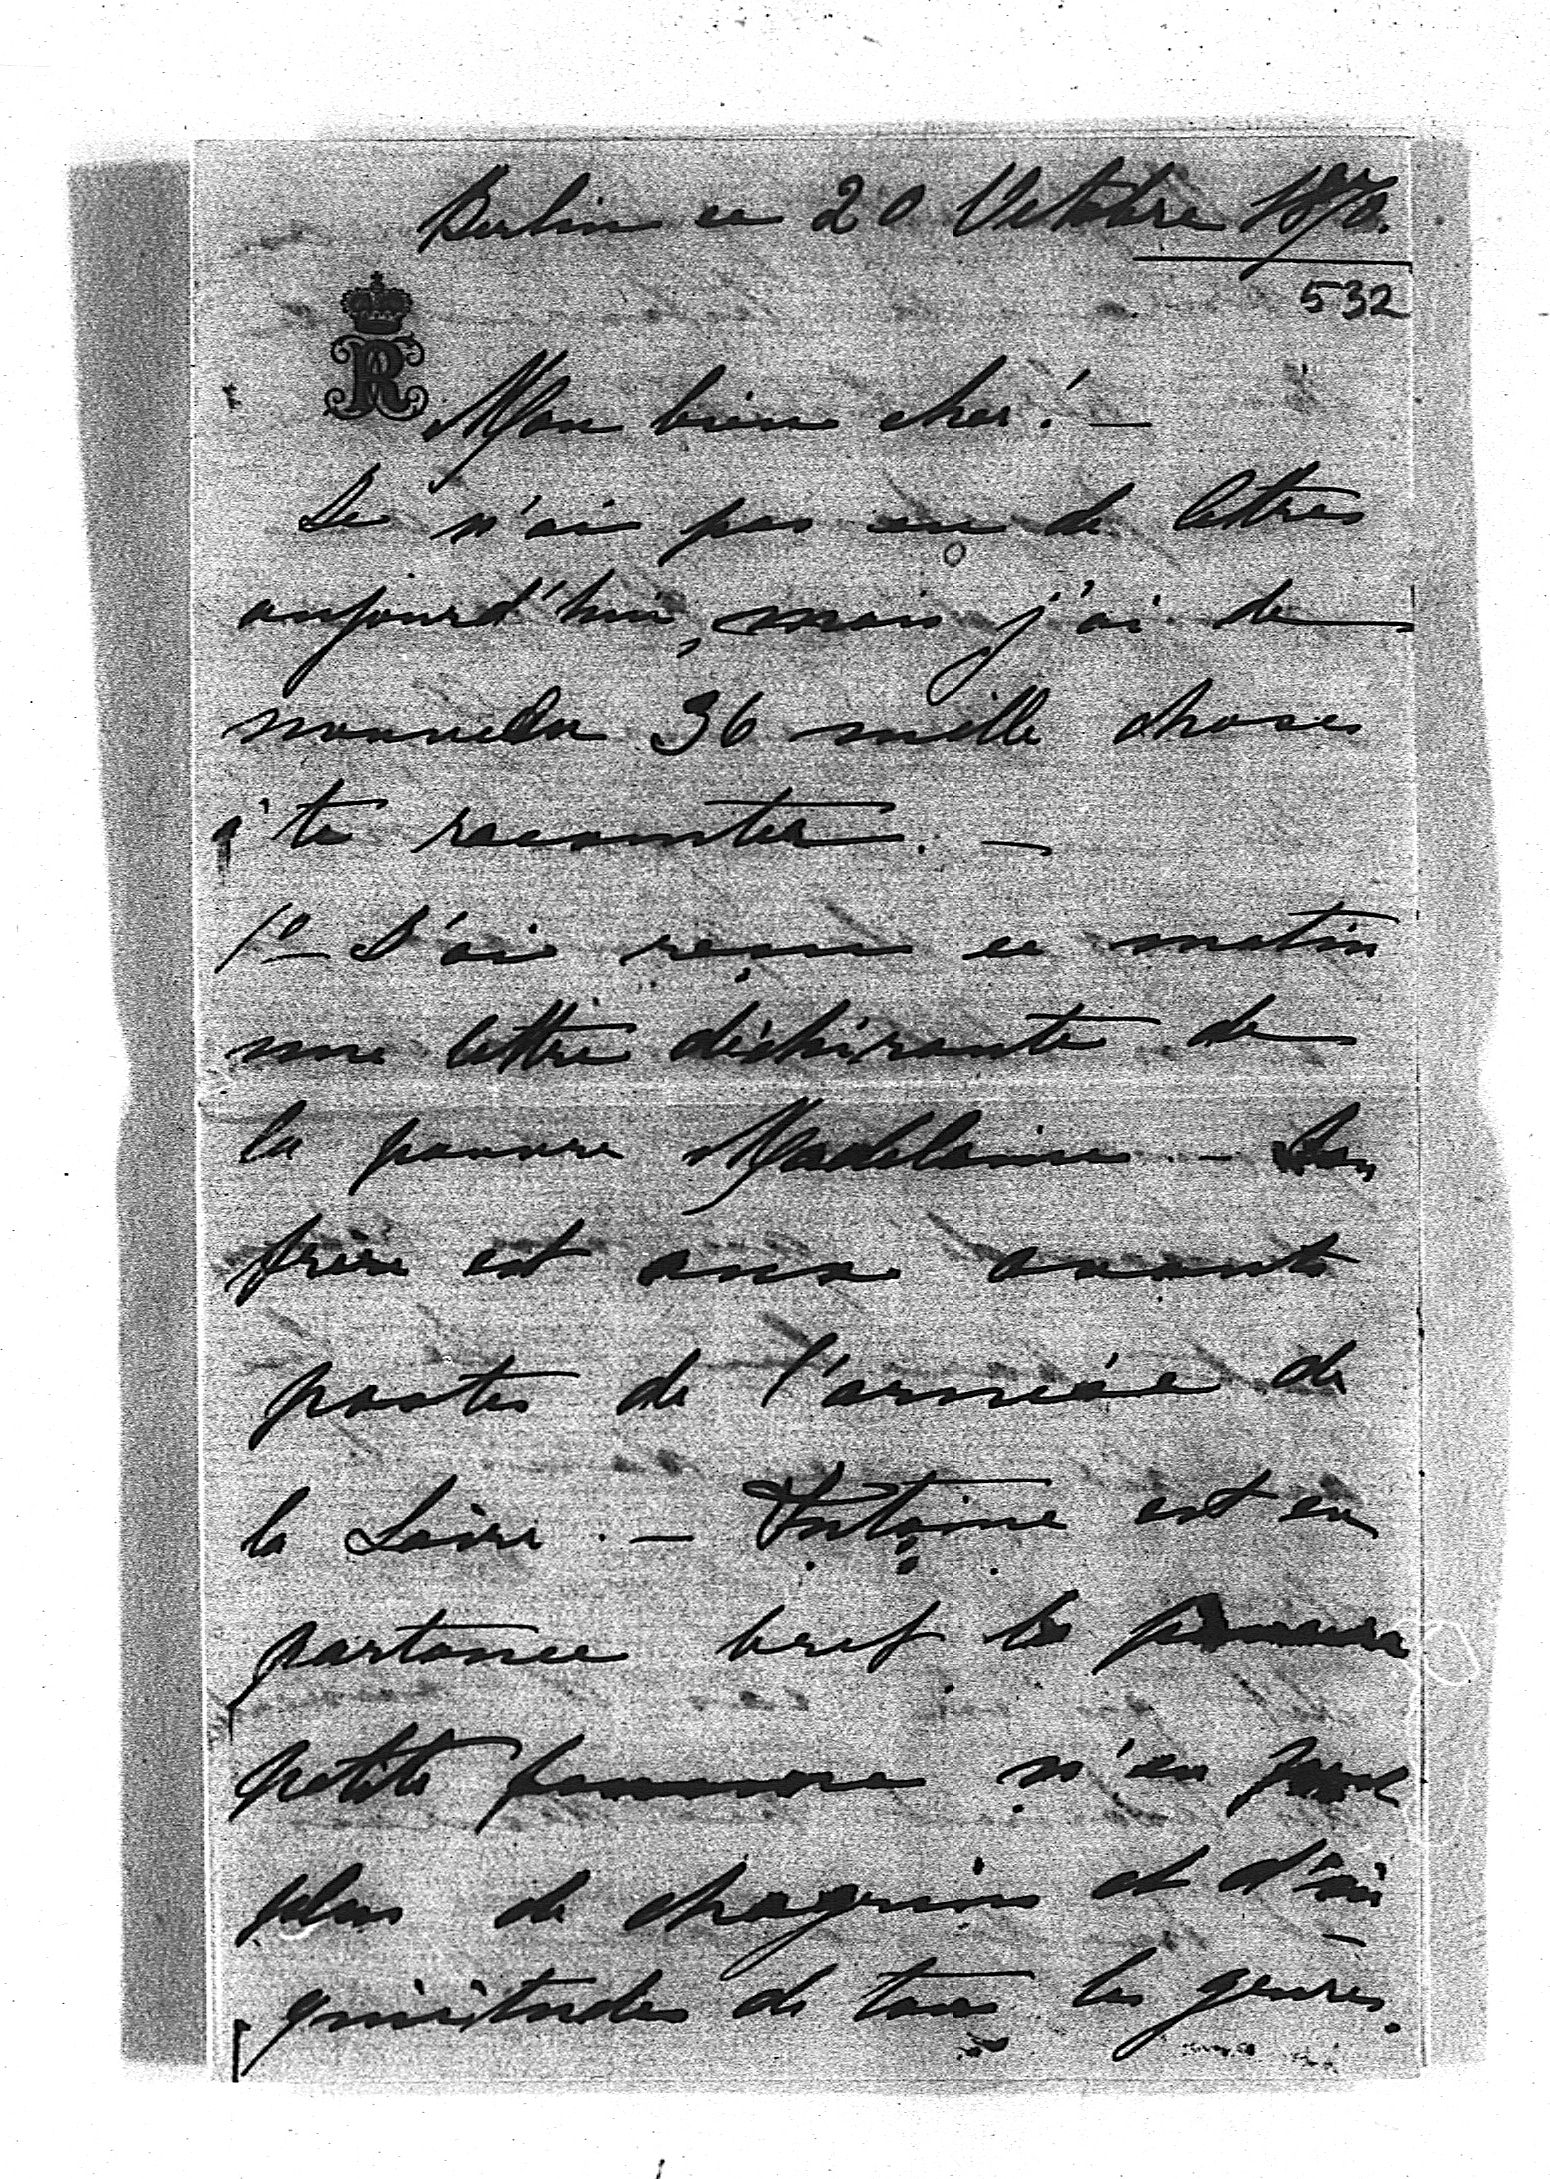 Berlin ce 20 Octobre 1870.
532
R
Mon bien cher! –
Je n'ai pas eu de lettres
aujourd'hui, mais j'ai de
nouveau 36 mille choses
à te raconter. –
1º J'ai reçu ce matin
une lettre déchirante de
la pauvre Madeleine – Son
frère est aux avants
postes de l'armée de
la Loire. – Antoine est en
partance bref la pauvre
petite femme n'en peut
plus de chagrin et d'in
quiétudes de tous les genres.